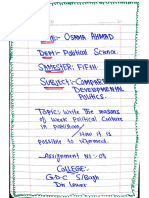 OSAMA AHMAD
DEPT:- Political Science.
SEMESTER: FIFTH
SUBJECT:- COMPARTIVE
DEVELOPMENTAL
Politics.
Topic:- Write the reasons
of weak Political Culture
in pakistan &
How it is
possible to reformed.
Assignment No:- 03
COLLEGE:
G.D.C S/Bagh
Dir Lower